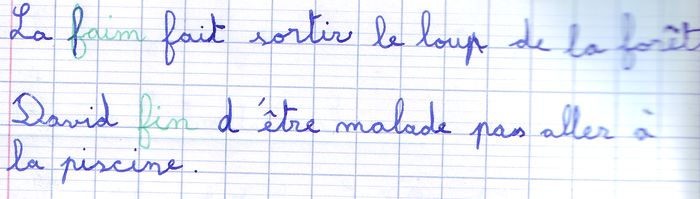 La faim fait sortir le loup de la forêt
David fin d'être malade pas aller à
la piscine.